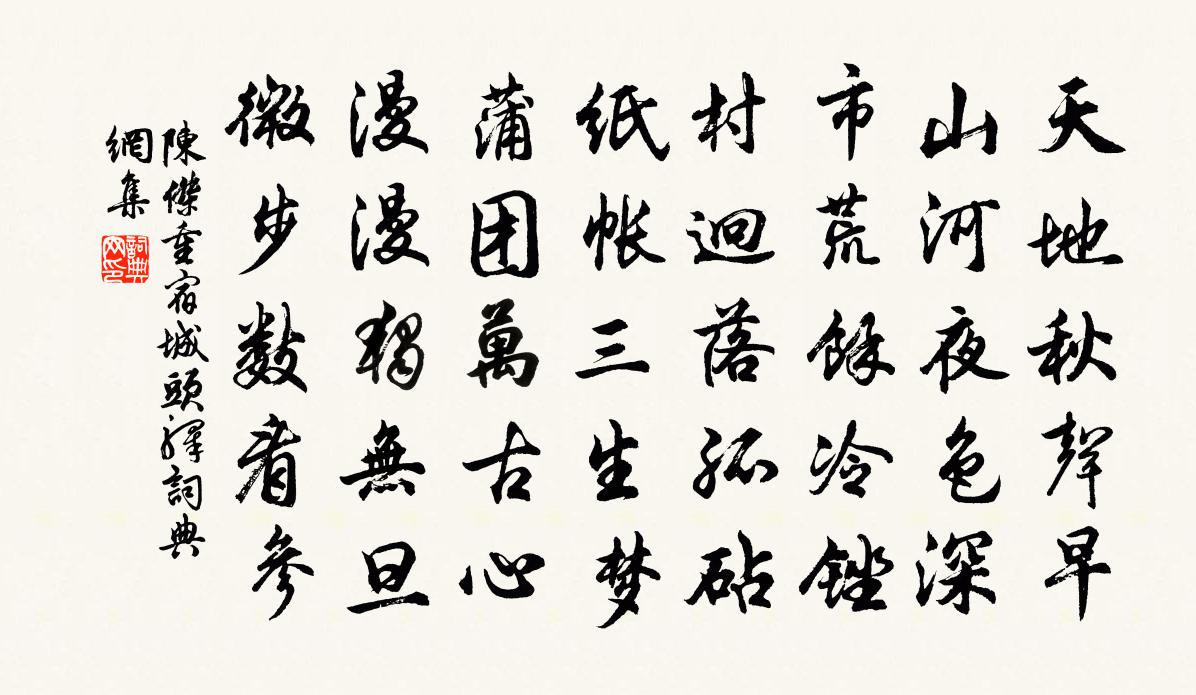 天地秋聲早
山河夜色深
市荒餘冷銼
村迥落孤砧
纸帐三生梦
蒲团萬古心
漫漫獨無旦
微步數看參
陳傑重宿城頭驛詞典
網集
詞典网印